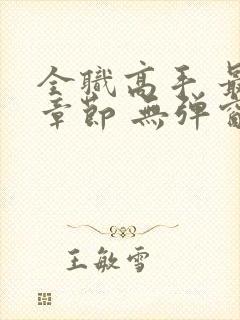 全職高手 最
章節 無彈窗
王敏雪